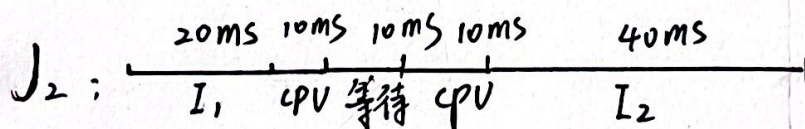 20ms 10ms 10ms 10ms 40ms
J₂: I₁ CPU 等待 CPU I₂